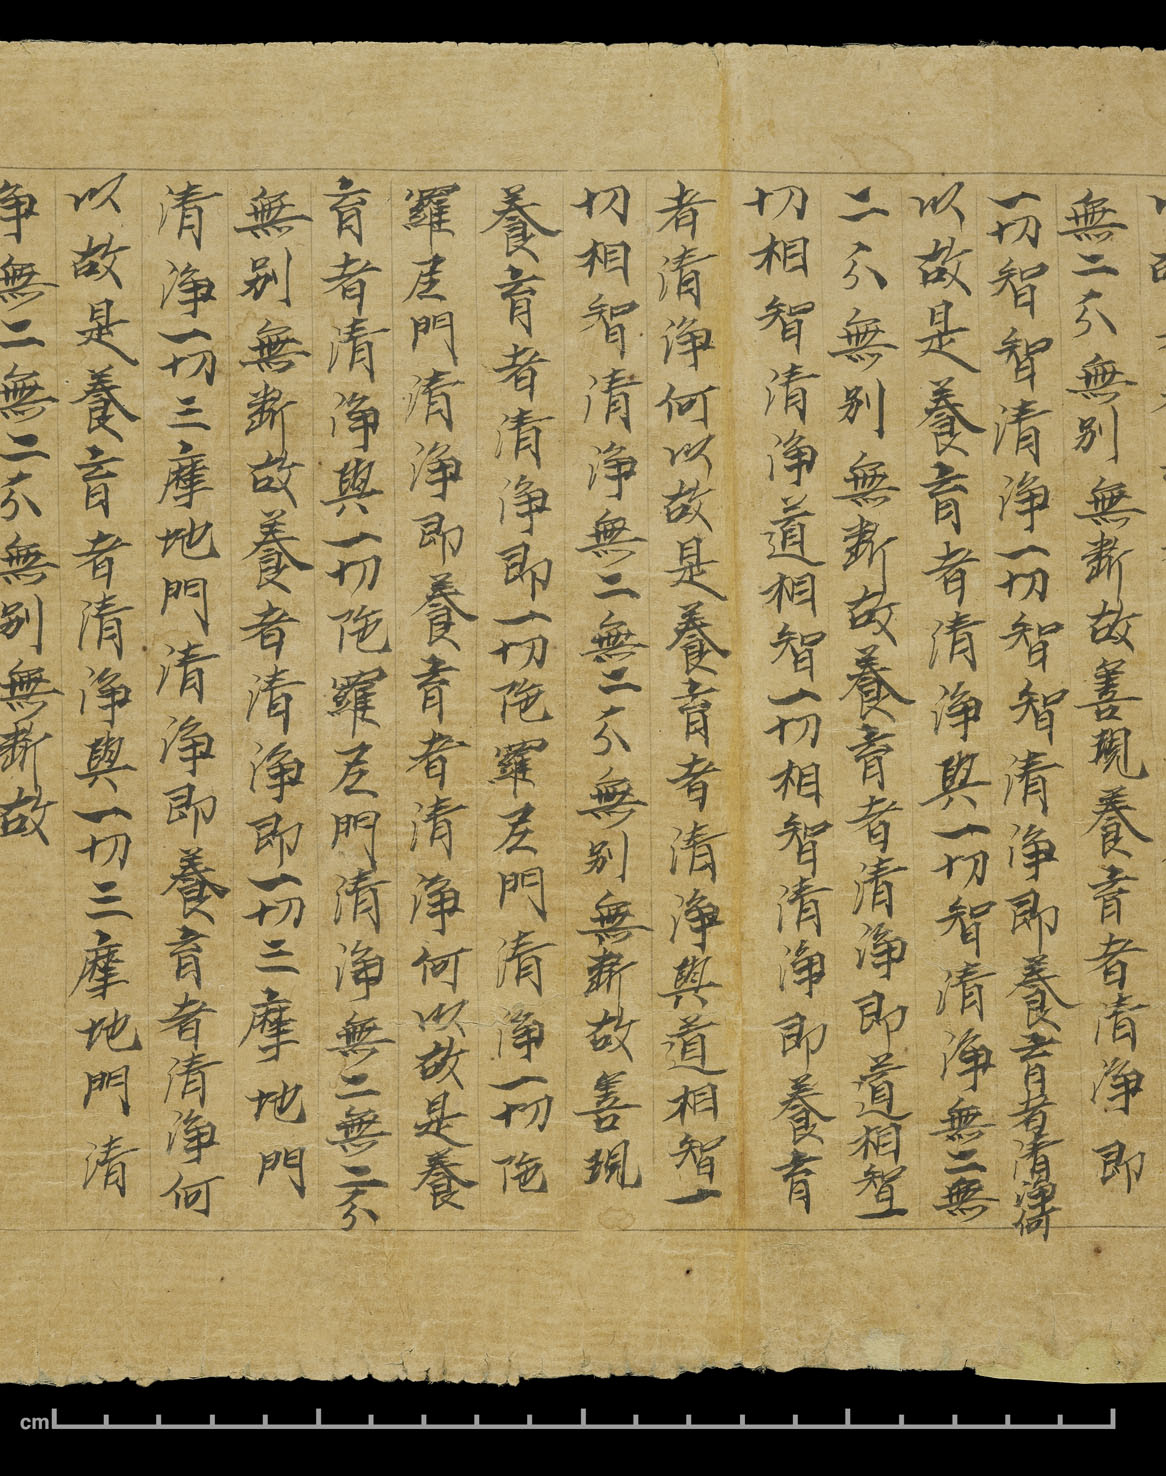 無二分無別無斷故善現養育者清淨即
一切智智清淨一切智智清淨即養育者清淨何
以故是養育者清淨與一切智清淨無二無
二分無別無斷故養育者清淨即道相智一
切相智清淨道相智一切相智清淨即養育
者清淨何以故是養育者清淨與道相智一
切相智清淨無二無二分無別無斷故善現
養育者清淨即一切陁羅尼門清淨一切陁
羅尼門清淨即養育者清淨何以故是養
育者清淨與一切陁羅尼門清淨無二無二分
無別無斷故養者清淨即一切三摩地門
清淨一切三摩地門清淨即養育者清淨何
以故是養育者清淨與一切三摩地門清
淨無二無二分無別無斷故